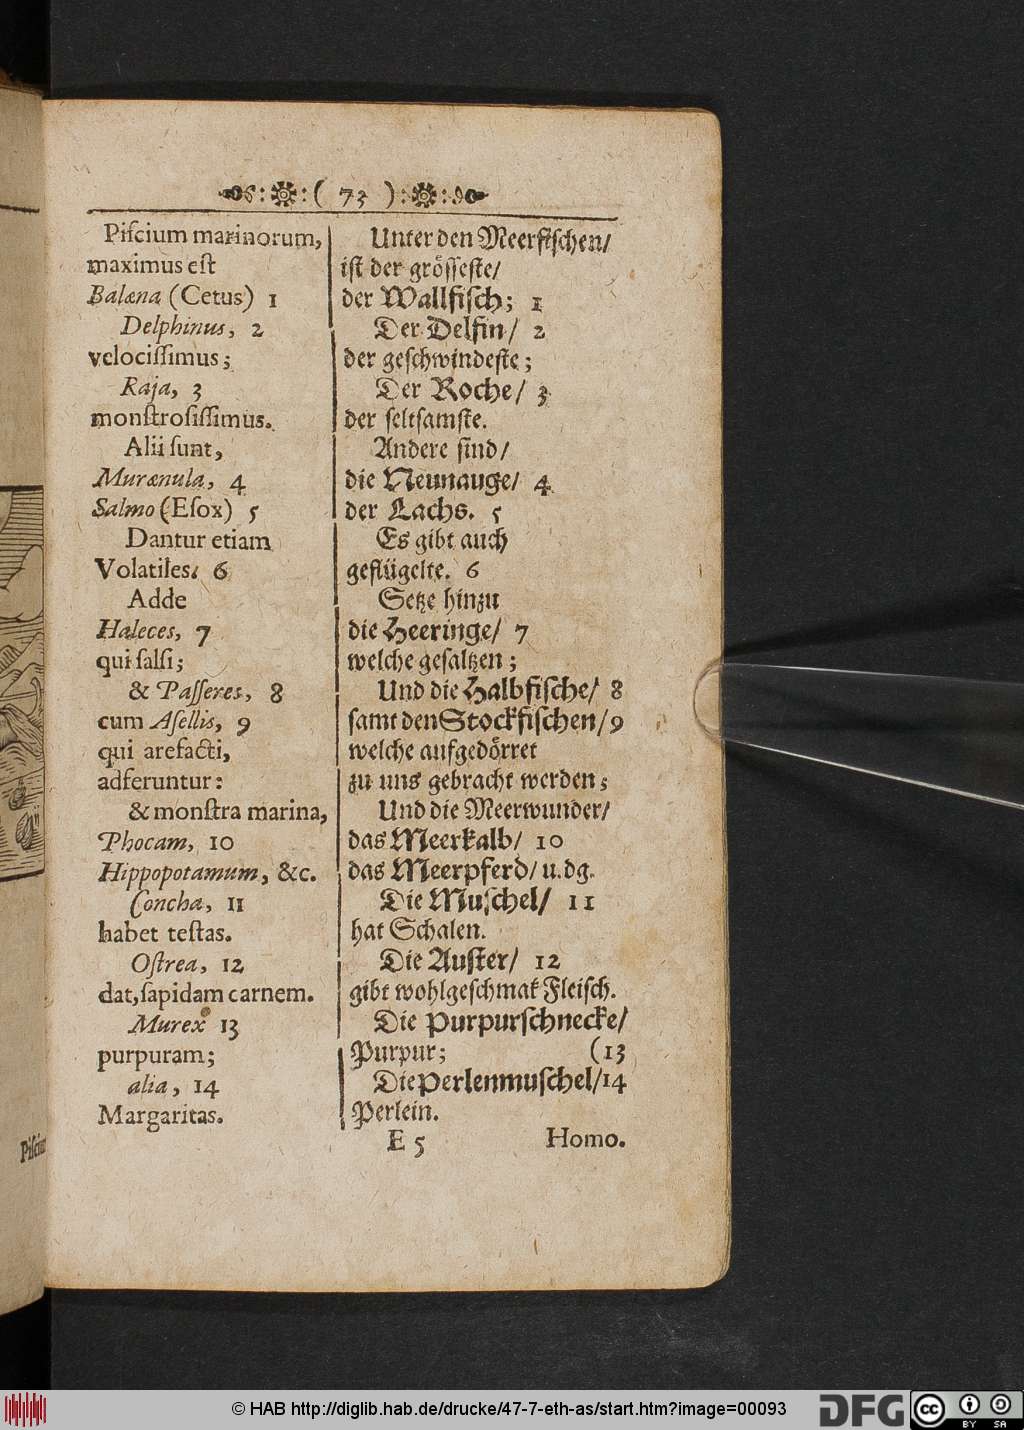 ( 73 )
Piſcium marinorum,
maximus eſt
Balæna (Cetus) 1
Delphinus, 2
velociſſimus;
Raja, 3
monſtroſiſſimus.
Alii ſunt,
Murænula, 4
Salmo (Eſox) 5
Dantur etiam
Volatiles. 6
Adde
Haleces, 7
qui ſalſi;
& Paſſeres, 8
cum Aſellis, 9
qui arefacti,
adferuntur:
& monſtra marina,
Phocam, 10
Hippopotamum, &c.
Concha, 11
habet teſtas.
Oſtrea, 12
dat, ſapidam carnem.
Murex 13
purpuram;
alia, 14
Margaritas.
Unter den Meerfiſchen/
iſt der gröſſeſte/
der Wallfiſch; 1
Der Delfin/ 2
der geſchwindeſte;
Der Roche/ 3
der ſeltſamſte.
Andere ſind/
die Neunauge/ 4
der Lachs. 5
Es gibt auch
geflügelte. 6
Setze hinzu
die Heeringe/ 7
welche geſaltzen;
Und die Halbfiſche/ 8
ſamt den Stockfiſchen/ 9
welche aufgedörret
zu uns gebracht werden;
Und die Meerwunder/
das Meerkalb/ 10
das Meerpferd/ u. dg.
Die Muſchel/ 11
hat Schalen.
Die Auſter/ 12
gibt wohlgeſchmak Fleiſch.
Die Purpurſchnecke/
Purpur; (13
Die Perlenmuſchel/ 14
Perlein.
E 5 Homo.
Piſcium
© HAB http://diglib.hab.de/drucke/47-7-eth-as/start.htm?image=00093
DFG
cc BY SA